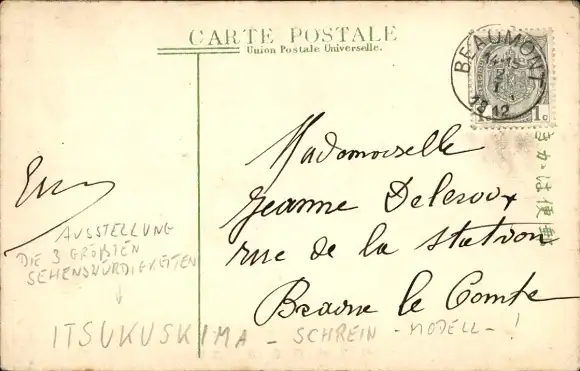 CARTE POSTALE
Union Postale Universelle.
BEAUMONT
1912
1c
Mademoiselle
Jeanne Deleroux
rue de la Station
le Comte
AUSSTELLUNG
DIE 3 GRÖßTEN
SEHENSWÜRDIGKEITEN
ITSUKUSHIMA - SCHREIN - MODELL - !